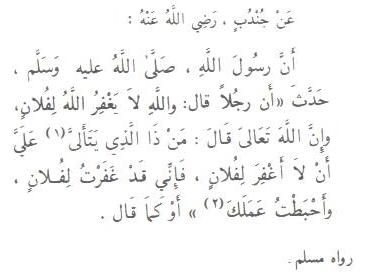 عَنْ جُنْدُبٍ ، رَضِيَ اللَّهُ عَنْهُ :
أَنَّ رسُولَ اللَّهِ ، صَلَّىٰ اللَّهُ عليه وَسَلَّم ،
حَدَّثَ «أَن رجُلاً قال: واللَّهِ لاَ يَغْفِرُ اللَّهُ لِفُلانٍ،
وإِنَّ اللَّهَ تَعَالَىٰ قَالَ : مَنْ ذَا الَّذِي يَتَأَلَّىٰ (١) عَلَيَّ
أَنْ لاَ أَغْفِرَ لِفُلانٍ ، فَإِنِّي قَدْ غَفَرْتُ لِفُـلانٍ ،
وأَحْبَطْتُ عَمَلَكَ (٢) » أَوْ كَمَا قَال .
رواه مسلم .